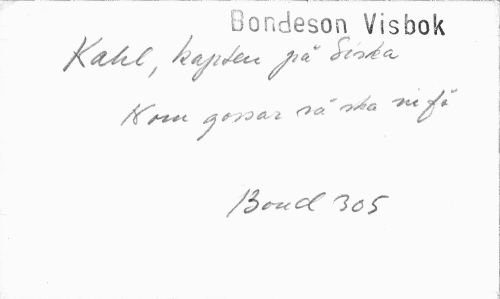 Bondeson Visbok
Kahl, kapten på Siska
Kom gossar så ska ni få
Bond 305